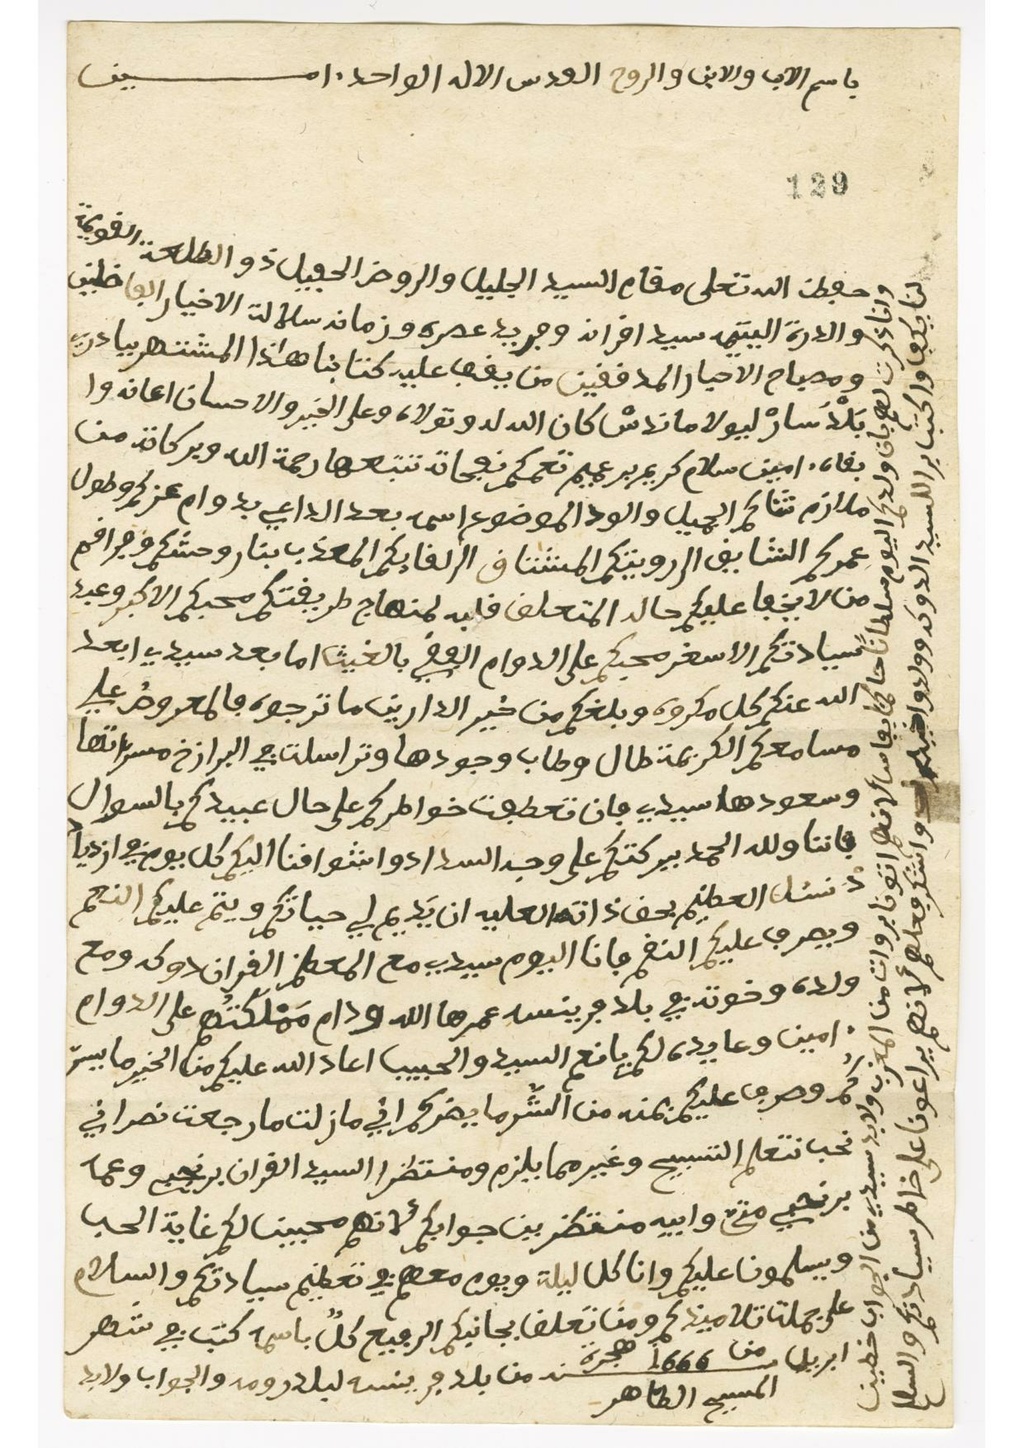 باسم الاب والابن والروح القدس الاله الواحد. امــــــين
139
حفظ الله تعلى مقام السيد الجليل والروض الجميل ذو الطلعة القويمة
والدرة اليتيمة سيد اقرانه وفريد عصره وزمانه سلالة الاخيار الفاضلين
ومصباح الاحبار المدققين من يقف عليه كتابنا هذا المشتهر بيادري
بَلْدَسَارْ ليولا مانداسْ كان الله له وتولاه وعلى الخير والاحسان اعانه وا
بقاه. امين سلام كريم بر عميم تعمكم نفحاته تتبعها رحمة الله وبركاته من
ملازم ثناكم الجميل والود الموضوع اسمه بعد الداعي بدوام عزكم وطول
عمركم الشايق الى رويتكم المشتاق الى لقايكم المعذب بنار وحشكم وفراقكم
من لا يخفا عليكم حاله المتعلق قلبه لمنهاج طريقتكم محبكم الاكبر وعبد
سيادتكم الاصغر محبكم على الدوام الوفي بالغيث اما بعد سيدي ابعد
الله عنكم كل مكروه وبلغكم من خير الدارين ما ترجوه فالمعروض على
مسامعكم الكريمة طال وطاب وجودها وتراسلت في البرازخ مسراتها
وسعودها سيدي فان تعطفت خواطركم على حال عبيدكم بالسوال
فاننا ولله الحمد ببركتكم على وجه السداد واشواقنا اليكم كل يوم في ازديا
د نسئل العظيم بحق ذاته العليه ان يَديم لي حياتكم ويتم عليكم النعم
ويصرف عليكم النقم فانا اليوم سيدي مع المعظم القران دوكه ومع
ولده وخوته في بلد فرينسه عمرها الله ودام مَمْلَكَتُهم على الدوام
. امين وعايده لكم يانعم السيد والحبيب اعاد الله عليكم من الخير ما يسرّ
كُم وصرف عليكم بمنه من الشَّر ما يضركم اني مازلت ما رجعت نصراني
نحب نتعلم التسبيح وغير مما يلزم ومنتظر السيد القران برنجبي وعمه
برنجبي متيّه وابيه منتظرين جوابكم لانهم محبين لكم غاية الحب
ويسلمون عليكم وانا كل ليلة ويوم معهم في تعظيم سيادتكم والسلام
على جملت تلاميذكم ومن تعلق بجانبكم الرفيع كلٌ باسمه كتب في شهر
ابريل من 1666 هجرة
المسيح الطاهر من بلد فرينسه لبلد رومه والجواب ولابد
وانا ذكرت لهم بان ولدكم اليوم سلطاناً حاكما بفاس لانهم اتونا بروات من المغرب ولابد سيدي من الجواب خطين
لنا بكربوا واكتب ير للسيد الدوكه وولدو واشكر فعلهم لانهم يراعونا على خاطر سيادتكم والسلام